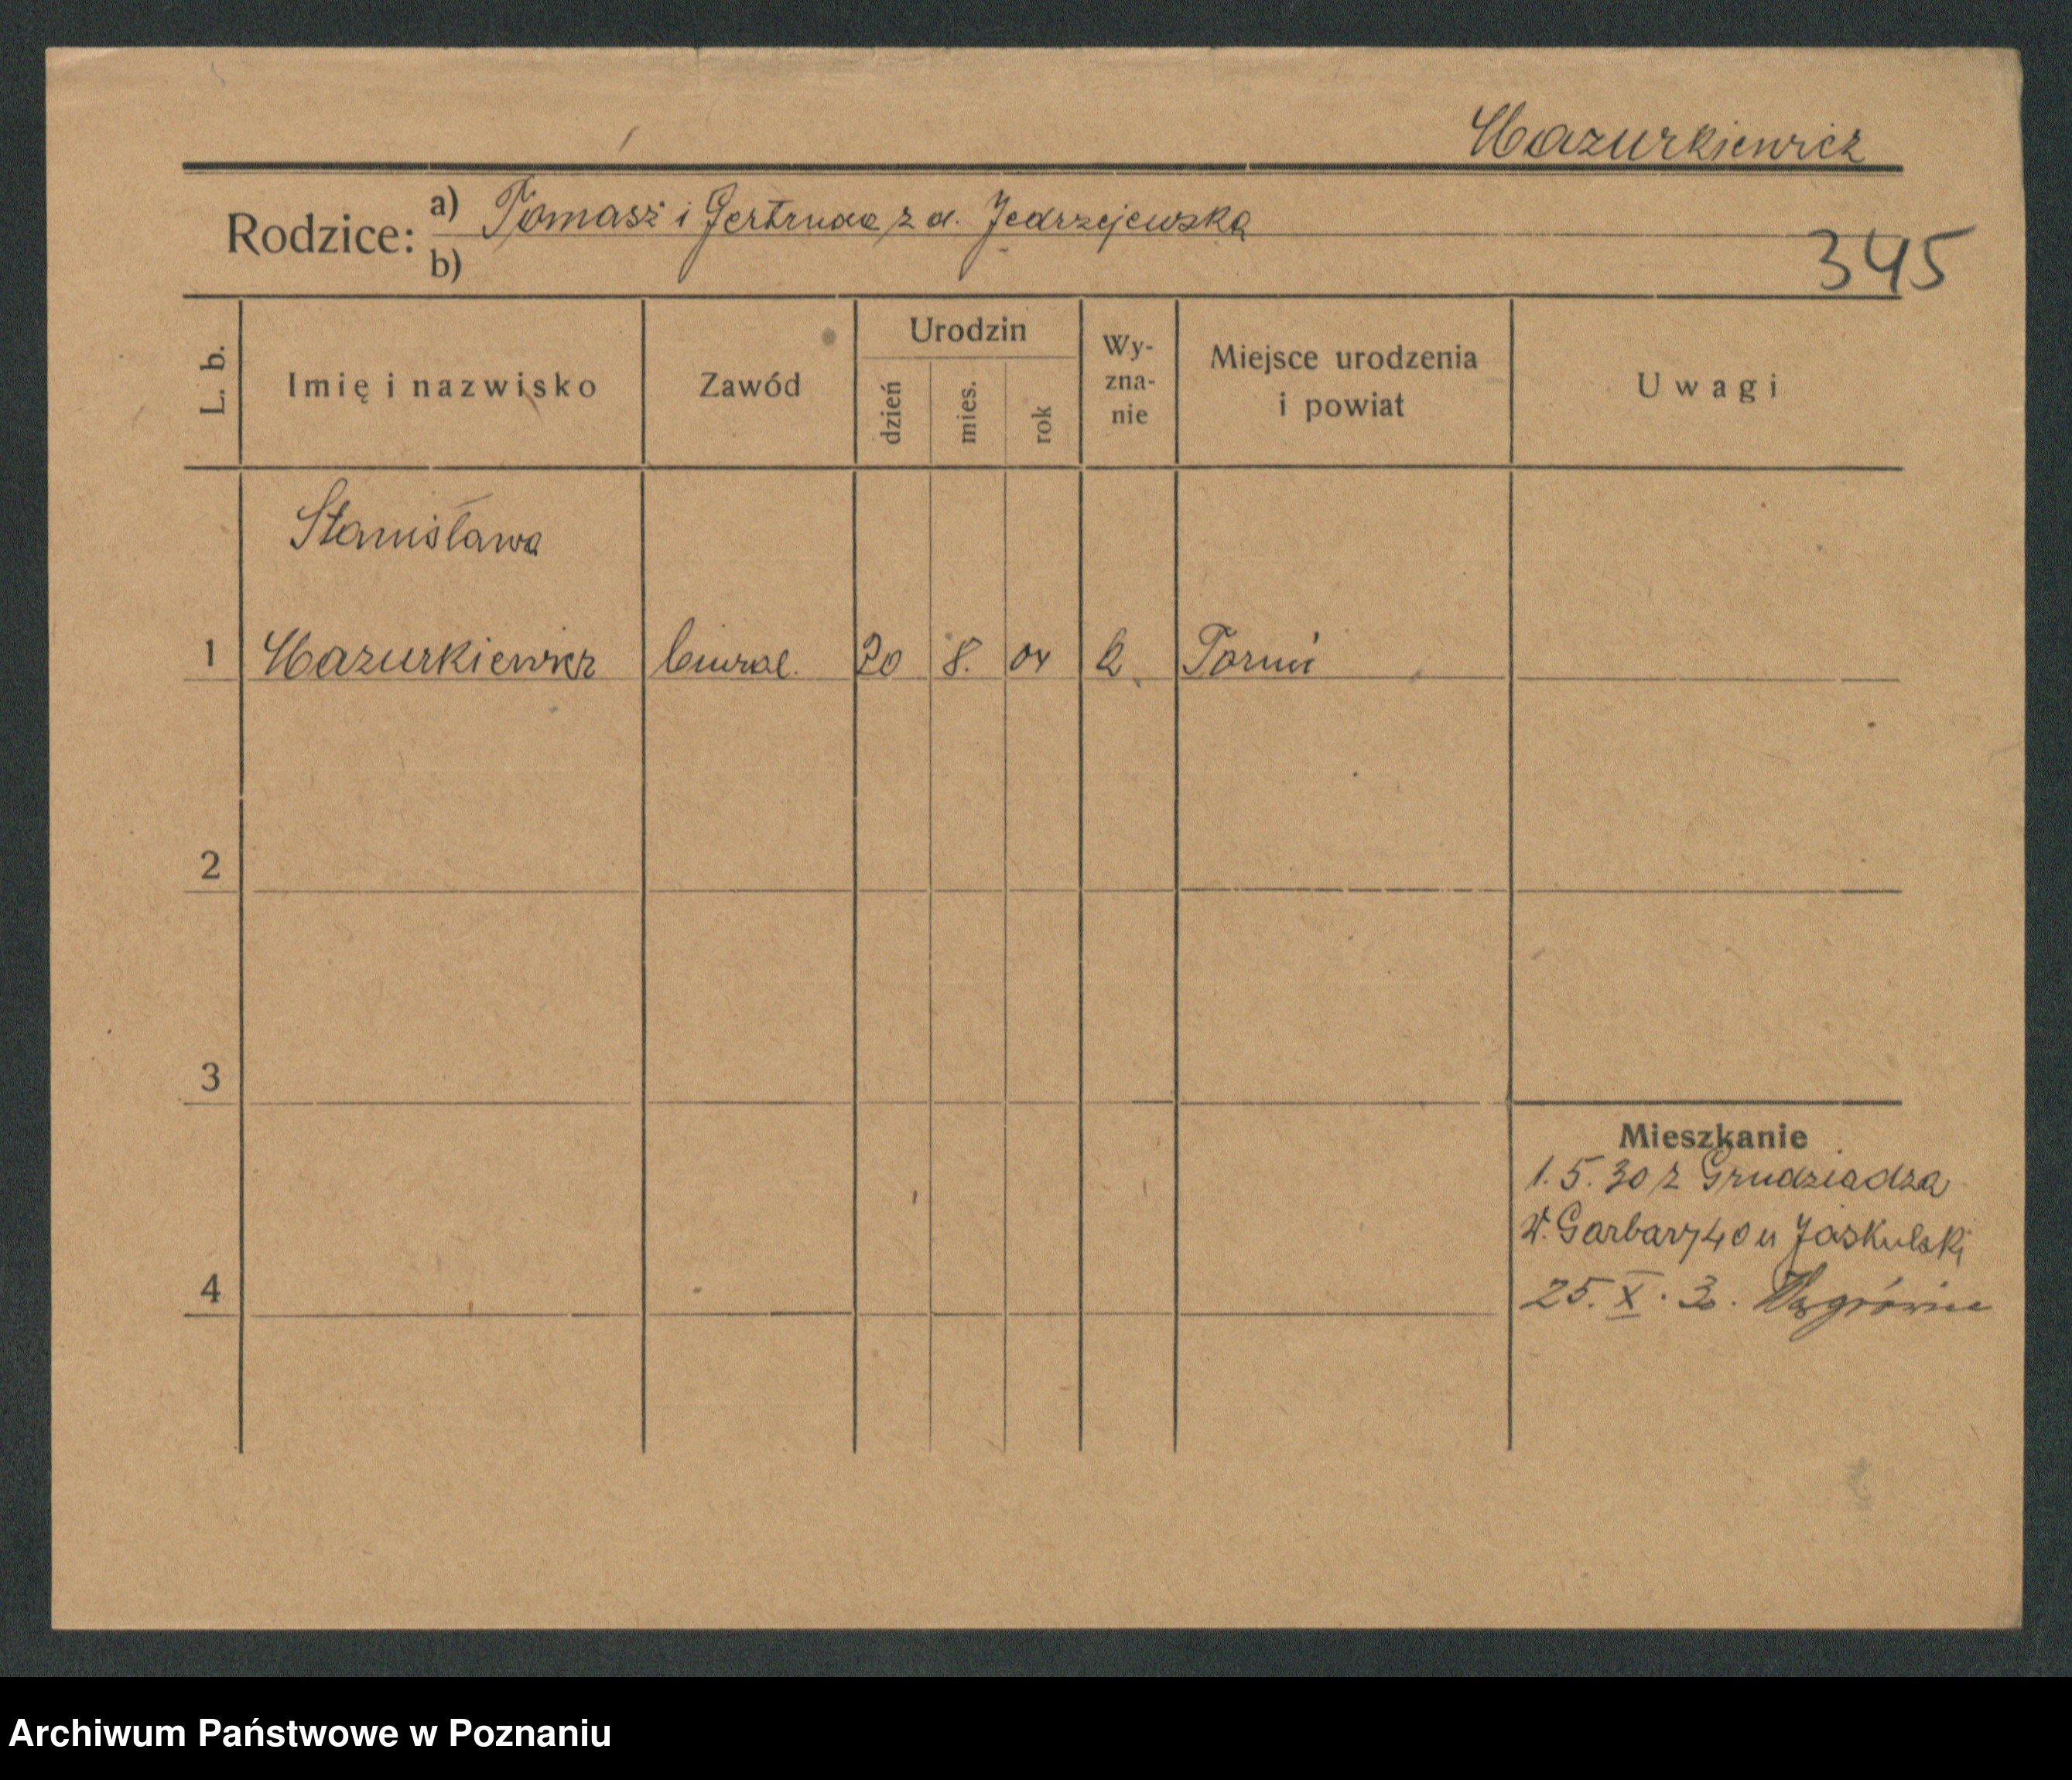 Mazurkiewicz
Rodzice: a) Tomasz i Gertruda z d. Jedrzejewska
b)
345
L. b.
Imię i nazwisko
Zawód
Urodzin
dzień
mies.
rok
Wy-
zna-
nie
Miejsce urodzenia
i powiat
Uwagi
Stanisława
1 Mazurkiewicz biural. 20 8. 04 k. Toruń
2
3
Mieszkanie
1. 5. 30 z Grudziadza
W. Garbary 40 u Jaskulski
4
25. X. 30. Wągrówiec
Archiwum Państwowe w Poznaniu